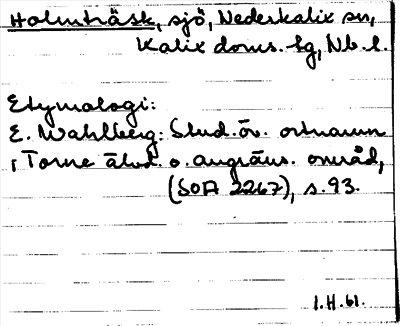 Holmträsk, sjö, Nederkalix sn,
Kalix doms. tg, Nb. l.
Etymologi:
E. Wahlberg: Stud. öv. ortnamn
i Torne älvd. o. angräns. områd,
(SOA 2267), s. 93.
I.H.61.